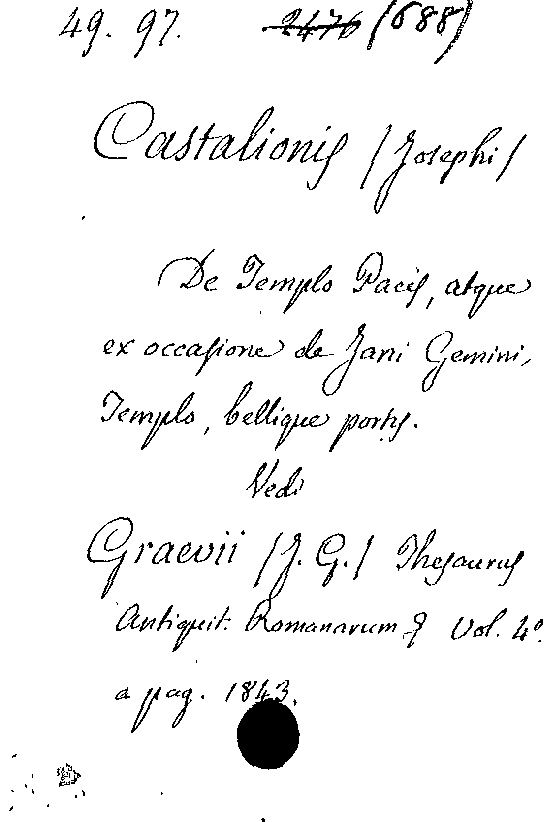 49. 97. 2476 (688)
Castalionis /Josephi/
De Templo Pacis, atque
ex occasione de Jani Gemini,
Templo, bellique portis.
Vedi
Graevii /J. G./ Thesaurus
Antiquit. Romanarum Vol. 4º
a pag. 1843.